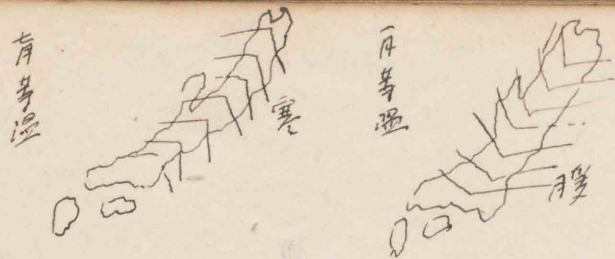 一月等温
暖
七月等温
寒